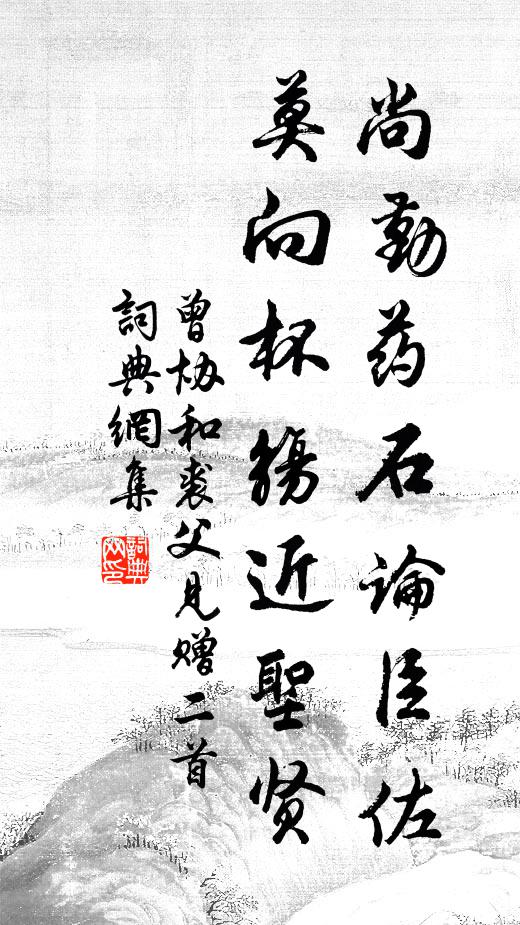 尚勤药石論臣佐
莫向杯觴近聖贤
曾協和裘父見赠二首
詞典網集
詞典網印